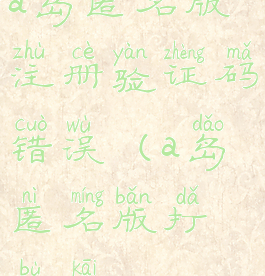 a岛匿名版
zhù cè yàn zhèng mǎ
注册验证码
cuò wù dǎo
错误(a岛
nì míng bǎn dǎ
匿名版打
bù kāi